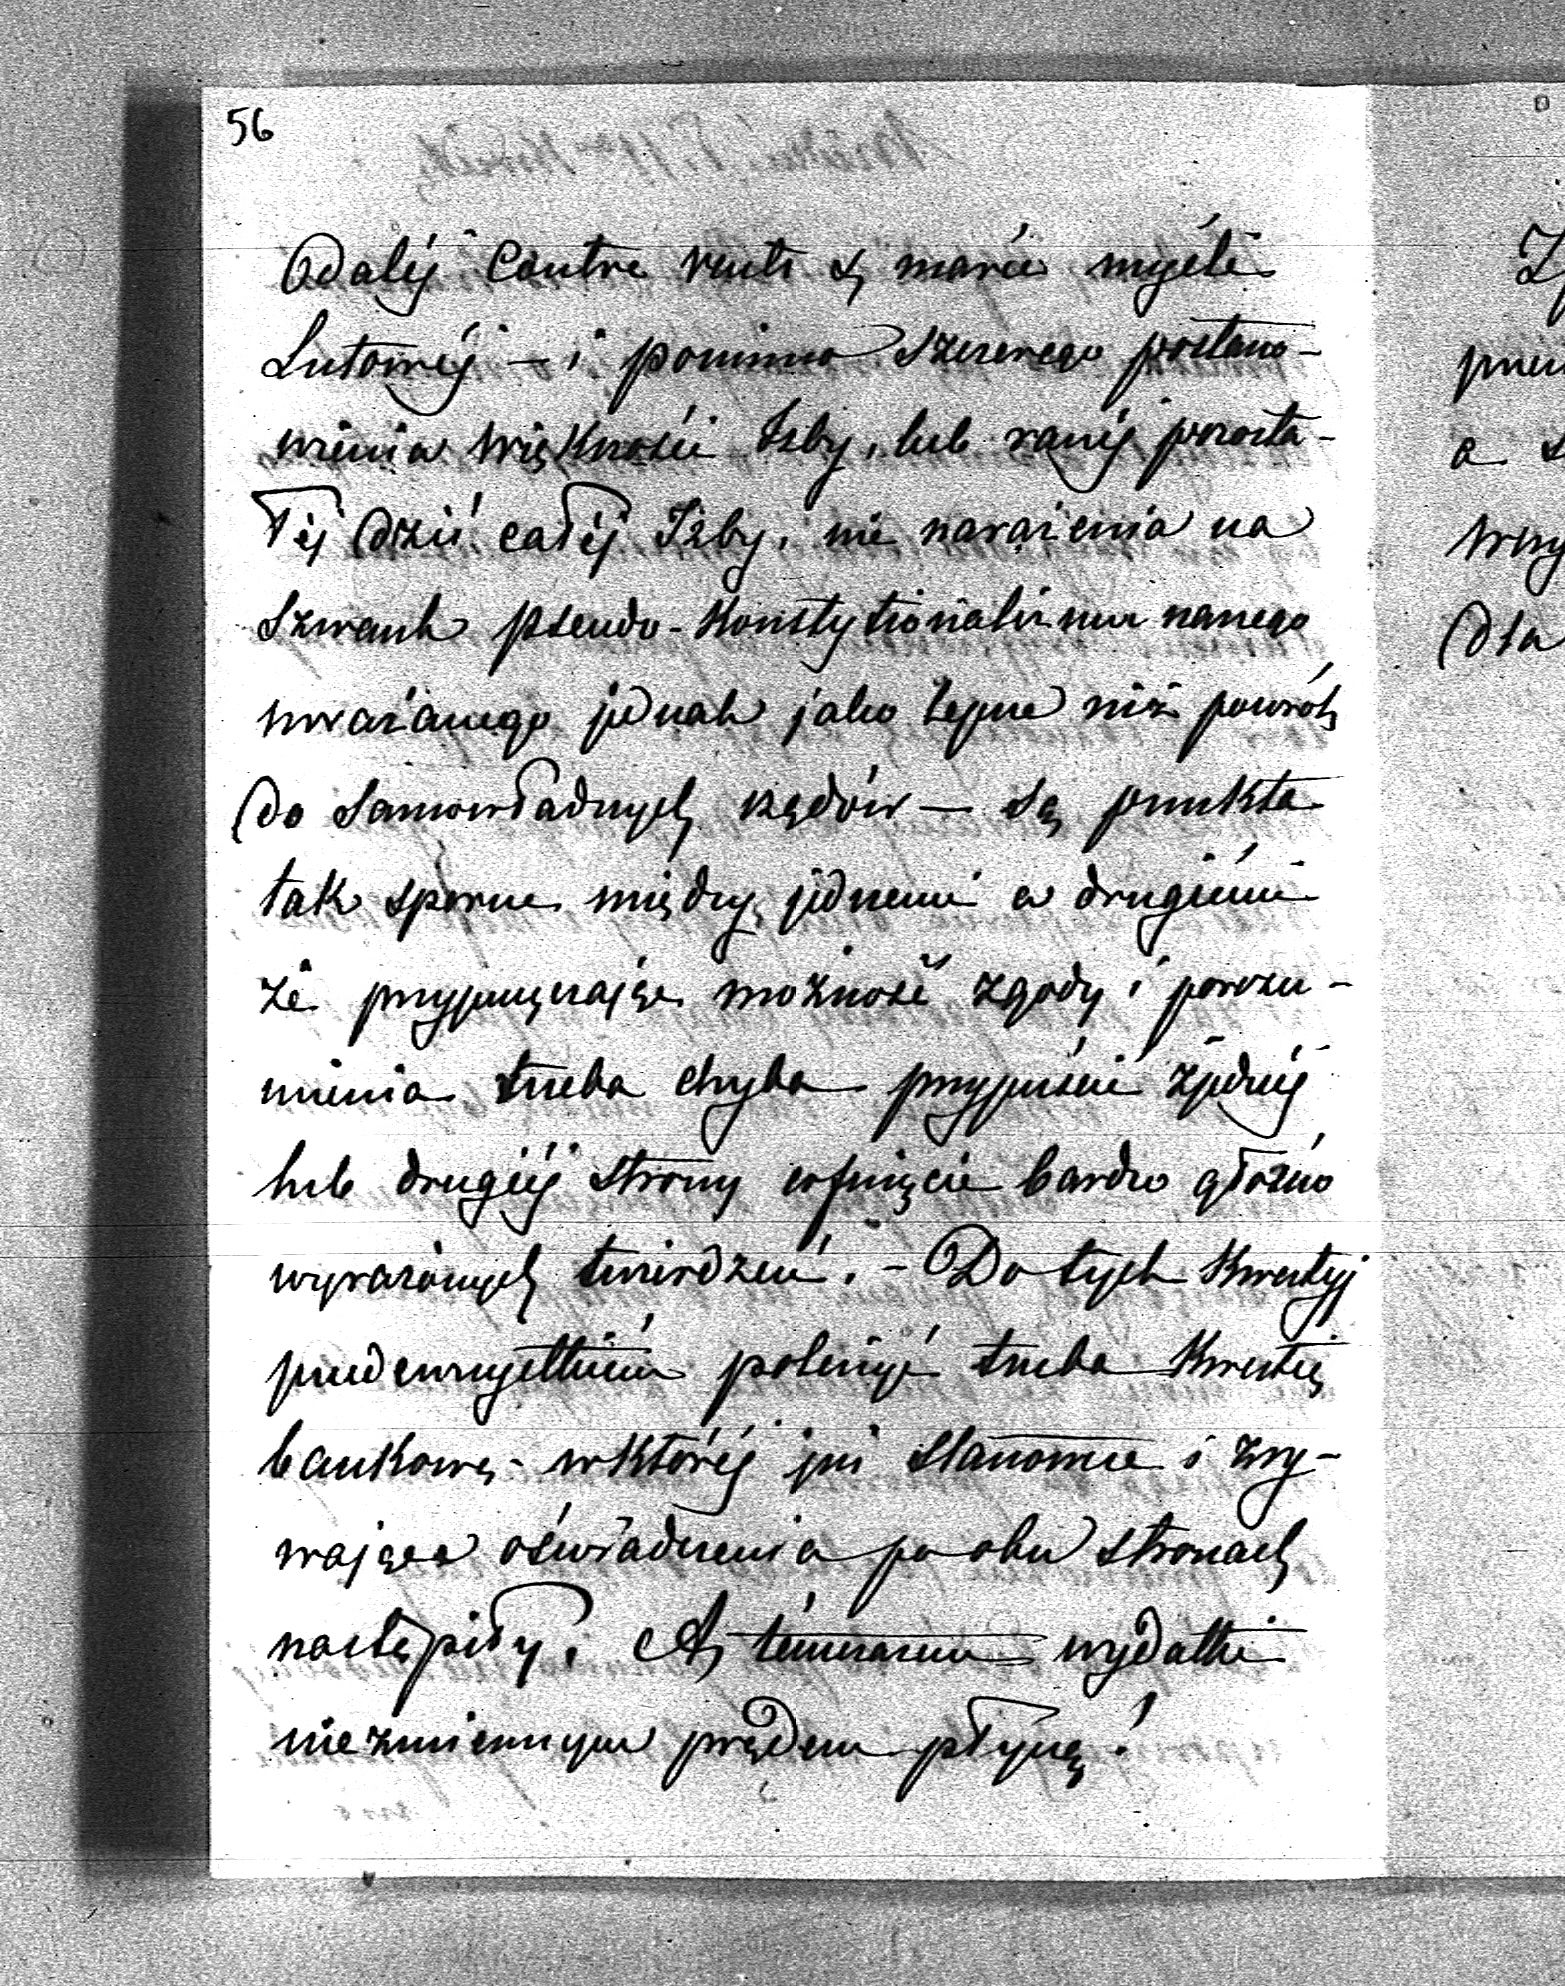 56
Odaléj Contre vents & marée myśli
Lutowéj – i pomimo szczerego postano-
wienia większości Izby, lub raczéj pozosta-
łéj dziś całéj Izby, nie narażenia na
szwank pseudo-Konstytucionalizmu naszego
uważanego jednak jako lepsze niż powrót
do samowładnych rządów — są punkta
tak sporne między jednemi a drugiémi
że przypuszczając możność zgody i porozu-
mienia trzeba chyba przypuścić z jednéj
lub drugiéj strony cofnięcie bardzo głośno
wyrażonych twierdzeń. – Do tych Kwestyj
przedewszystkiém policzyć trzeba Kwestię
bankową – w któréj już stanowcze i zry-
wające oświadczenia po obu stronach
nastąpiły. A témczasem wydatki
niezmiennym prądem płyną!